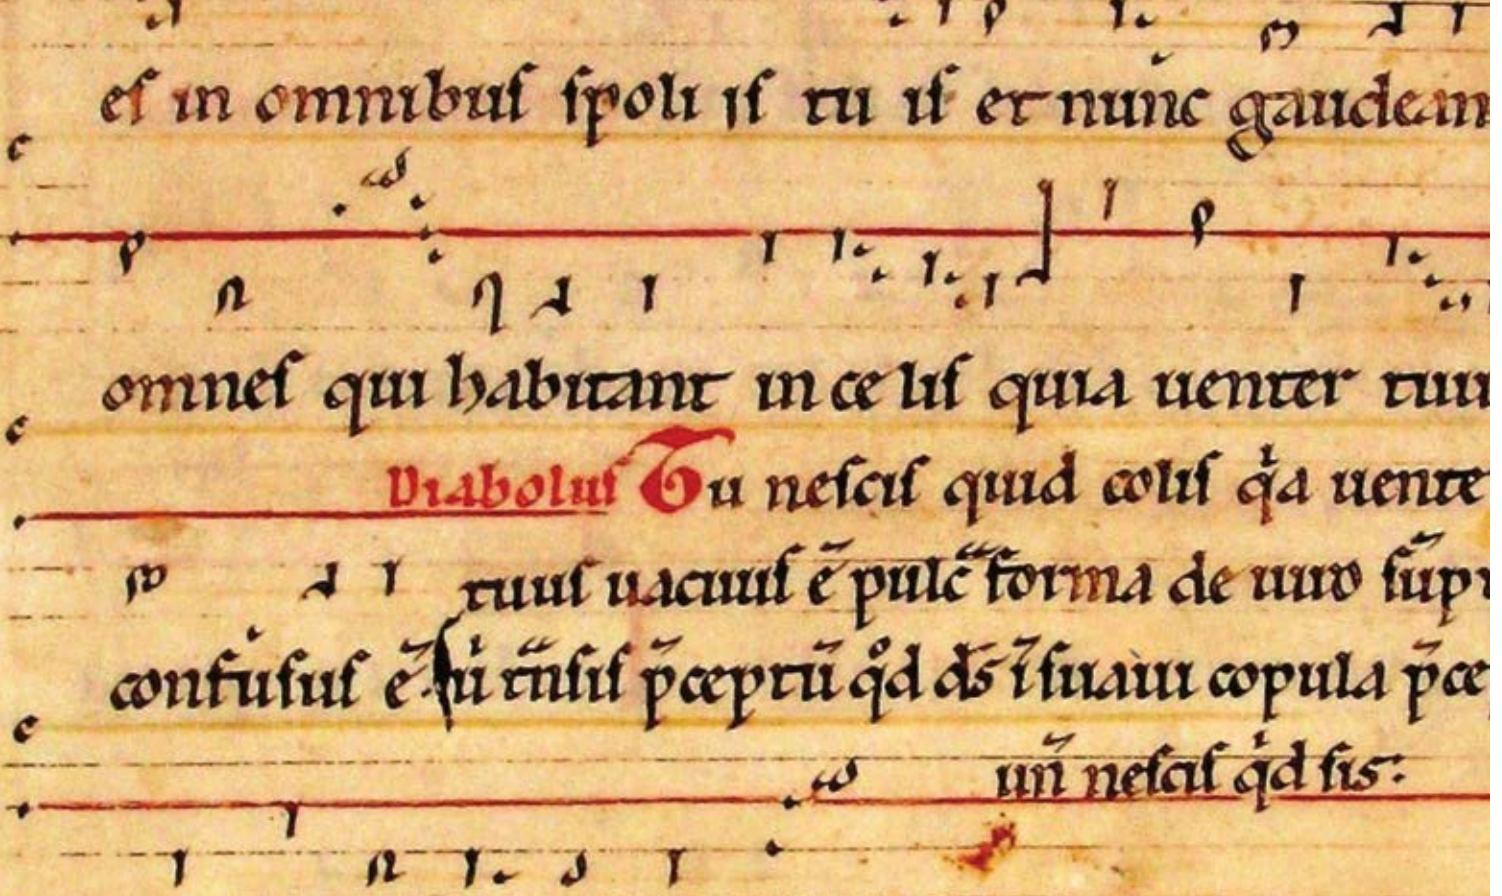 es in omnibus spoli is tu is et nunc gaudean
omnes qui habitant in ce lis quia uenter tuu
Diabolus Tu nescis quid colis q̓a uente
tuus uacuus ē pulc̄ forma de uiro sūp
confusus ē p̄ceptū qͦd ds̄ ī suaui copula p̄ce
un̄ nescis q̓d sis: